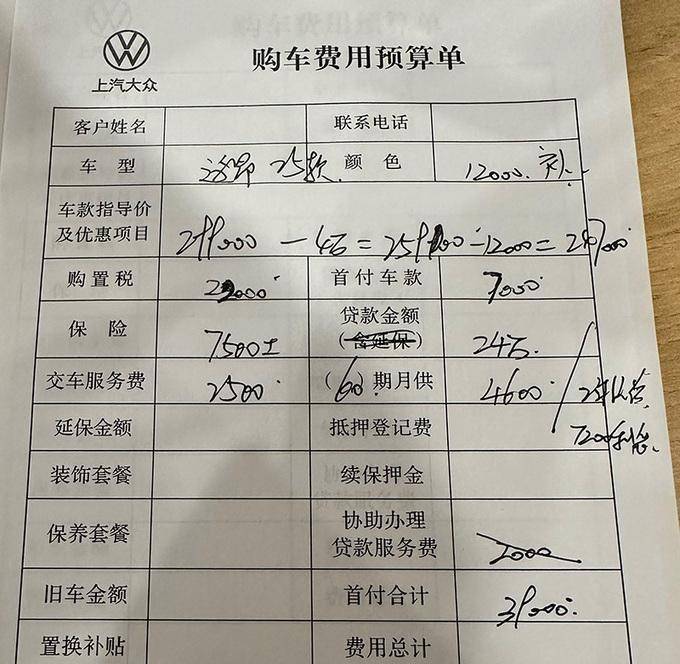 上汽大众
购车费用预算单
客户姓名 联系电话
车型 25款 颜色 12000
车款指导价
及优惠项目 299000 - 4万 = 259000 - 12000 = 247000
购置税 22000 首付车款 7000
保险 7500± 贷款金额
(含延保) 24万
交车服务费 2500 (60)期月供 4600
延保金额 抵押登记费
7200利息
装饰套餐 续保押金
保养套餐 协助办理
贷款服务费 2000
旧车金额 首付合计 39000
置换补贴 费用总计